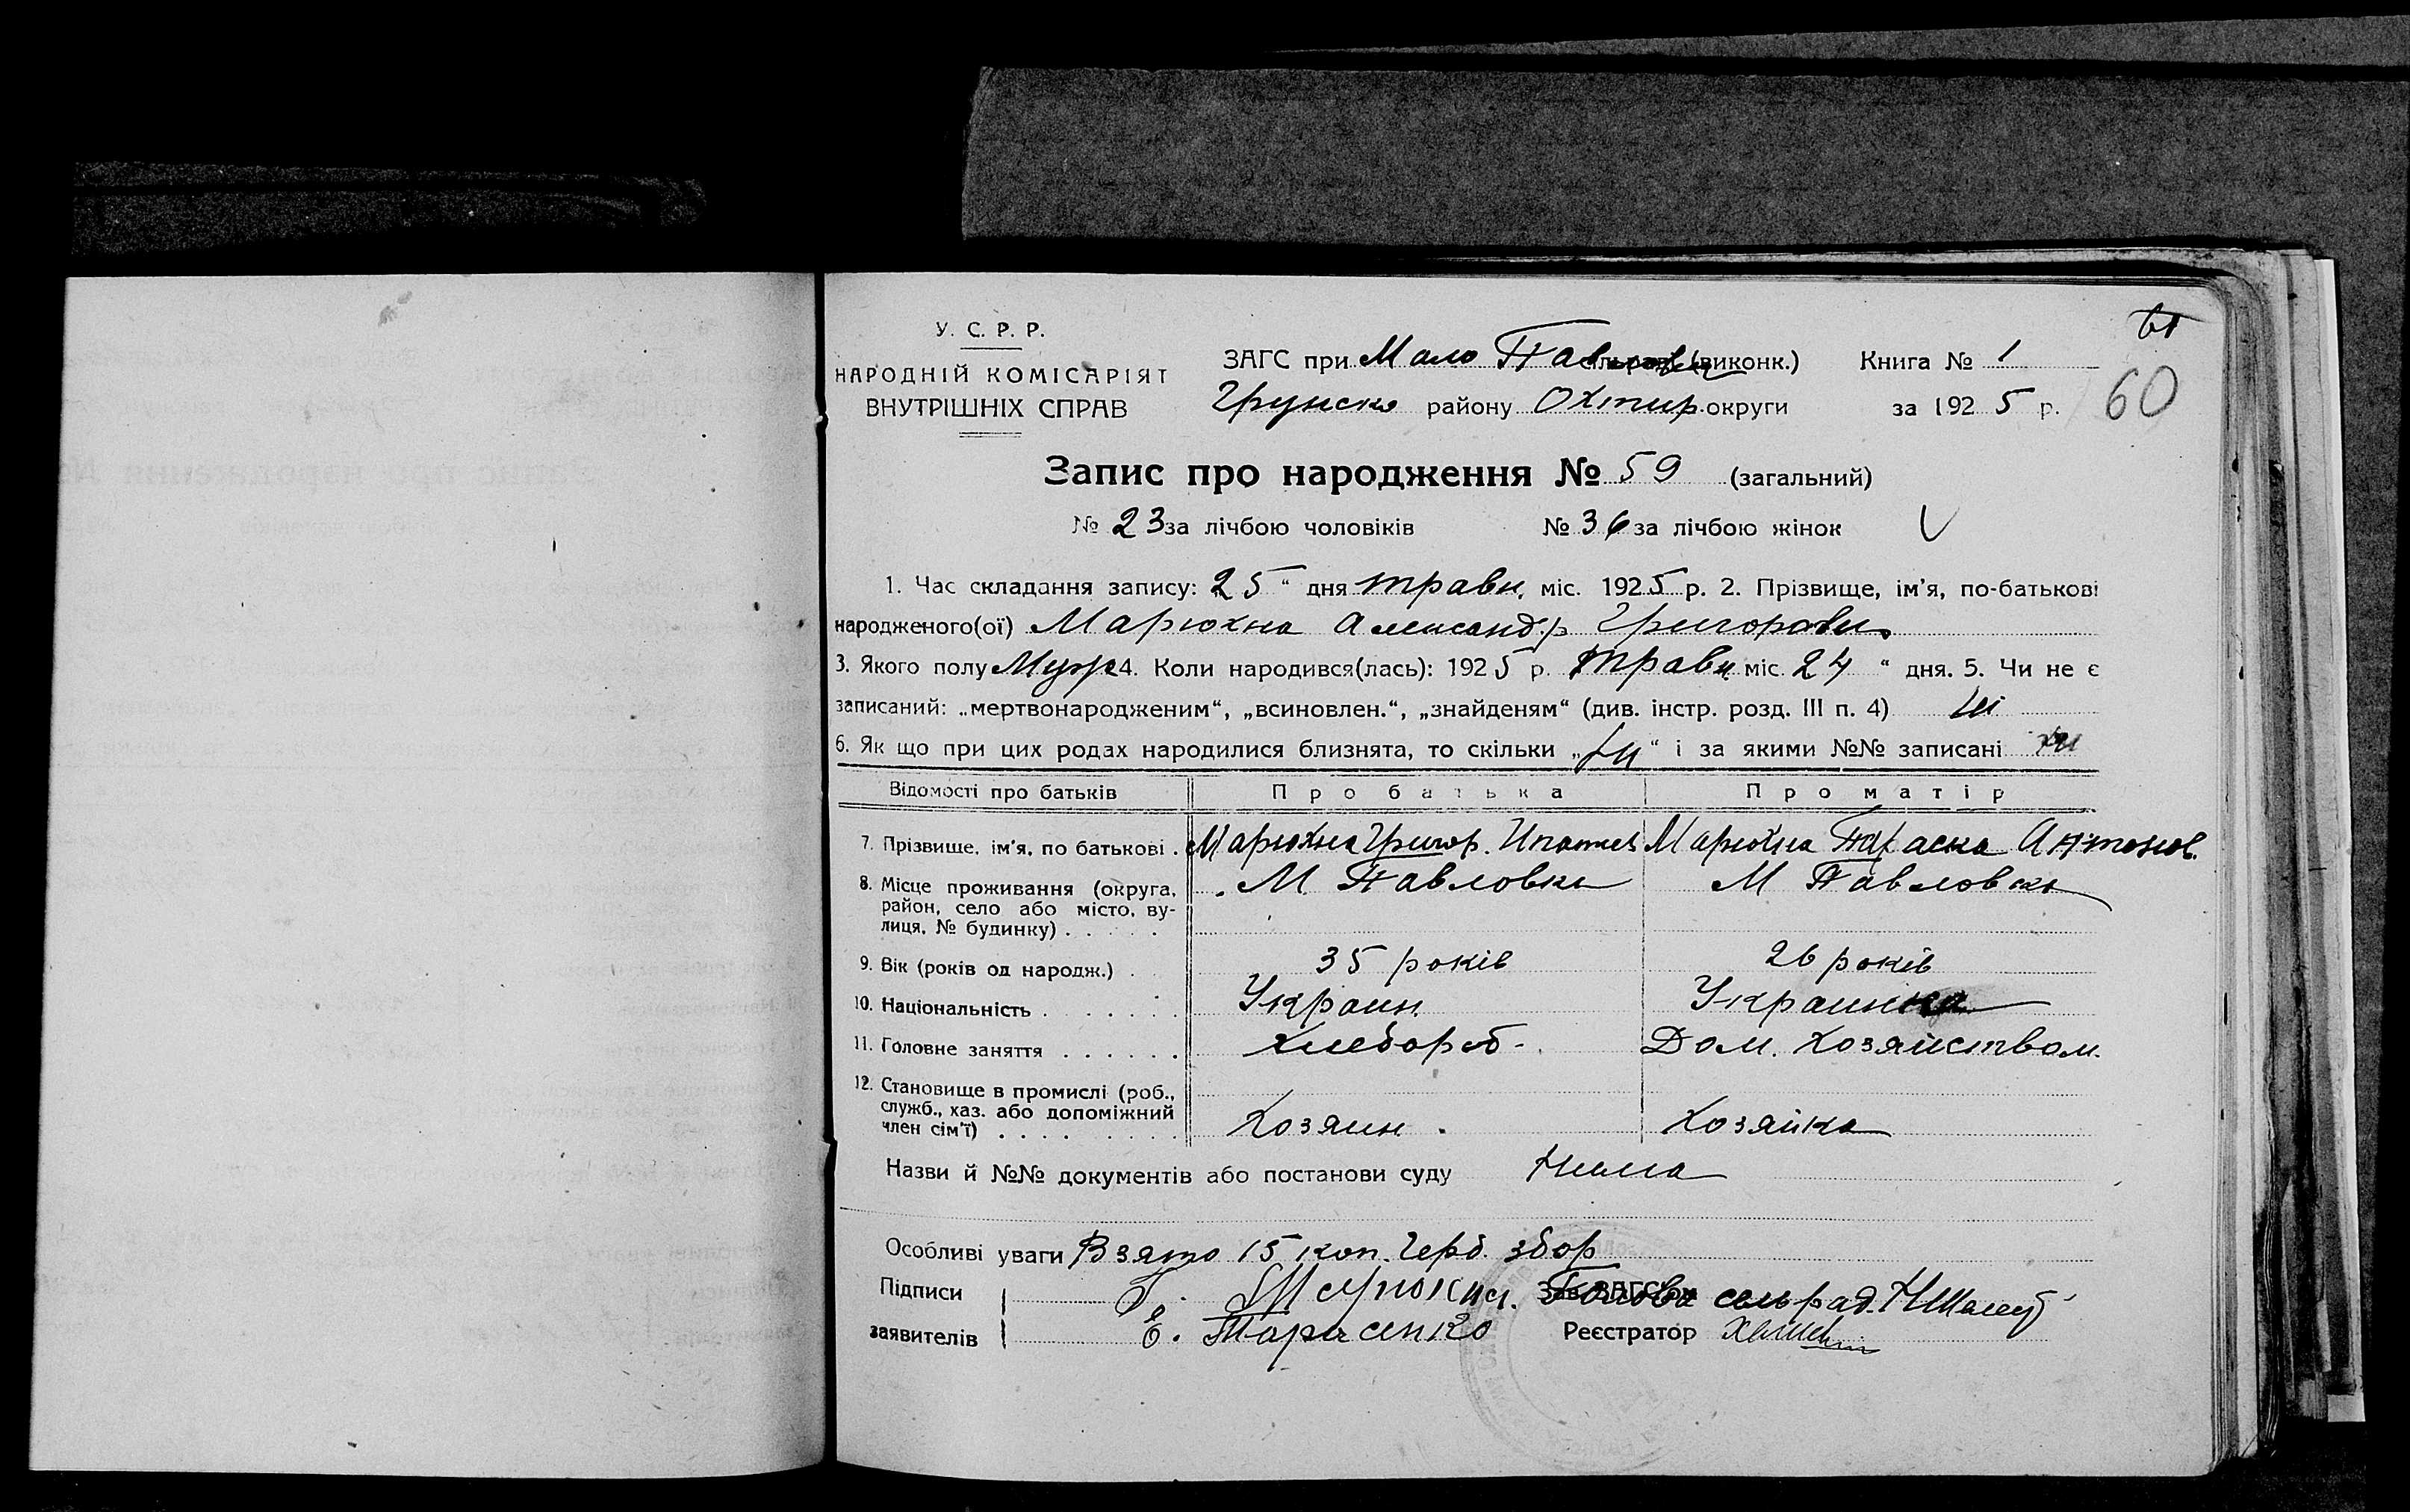 У. С. Р. Р.
НАРОДНІЙ КОМІСАРІЯТ
ВНУТРІШНІХ СПРАВ
ЗАГС при Мало Павловск (виконк.) Книга № 1
Грунско району Охтир. округи за 1925 р.
60
Запис про народження № 59 (загальний)
№ 23 за лічбою чоловіків № 36 за лічбою жінок
1. Час складання запису: 25 “ дня травн. міс. 1925 р. 2. Прізвище, ім’я, по-батькові
народженого(ої) Марюхна Александр Григорови.
3. Якого полу Муж 4. Коли народився(лась): 1925 р. травн міс. 24 “ дня. 5. Чи не є
записаний: „мертвонародженим“, „всиновлен.“, „знайденям“ (див. інстр. розд. III п. 4) Ні
6. Як що при цих родах народилися близнята, то скільки „ “ і за якими №№ записані
Відомості про батьків Про батька Про матір
7. Прізвище, ім’я, по батькові . Марюхна Григор. Ипатиев Марюхна Параска Антонов.
8. Місце проживання (округа, М Павловка М Павловка
район, село або місто, ву-
лиця, № будинку) . . . . .
9. Вік (років од народж.) . 35 років 26 років
10. Національність . . . . . . . Украин. Украинка
11. Головне заняття . . . . . . Хлебороб - Дом. Хозяйством.
12. Становище в промислі (роб.,
служб., хаз. або допоміжний
член сім’ї) . . . . . . . . . Хозяин. Хозяйка
Назви й №№ документів або постанови суду Нима
Особливі уваги Взято 15 коп. герб. збор
Підписи Г. Марюхна. Голова сельрад.
заявителів Є. Тарасенко Реєстратор